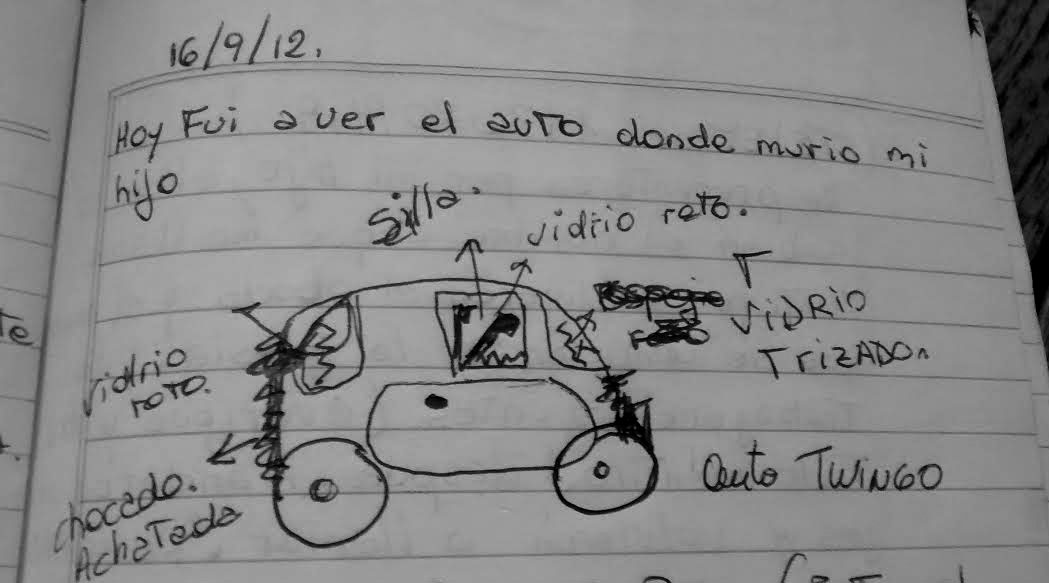 16/9/12.
Hoy Fui a ver el auto donde murio mi
hijo
Silla.
vidrio roto.
VIDRIO
TRIZADO.
vidrio
roto.
chocado.
Achatado
auto TWINGO